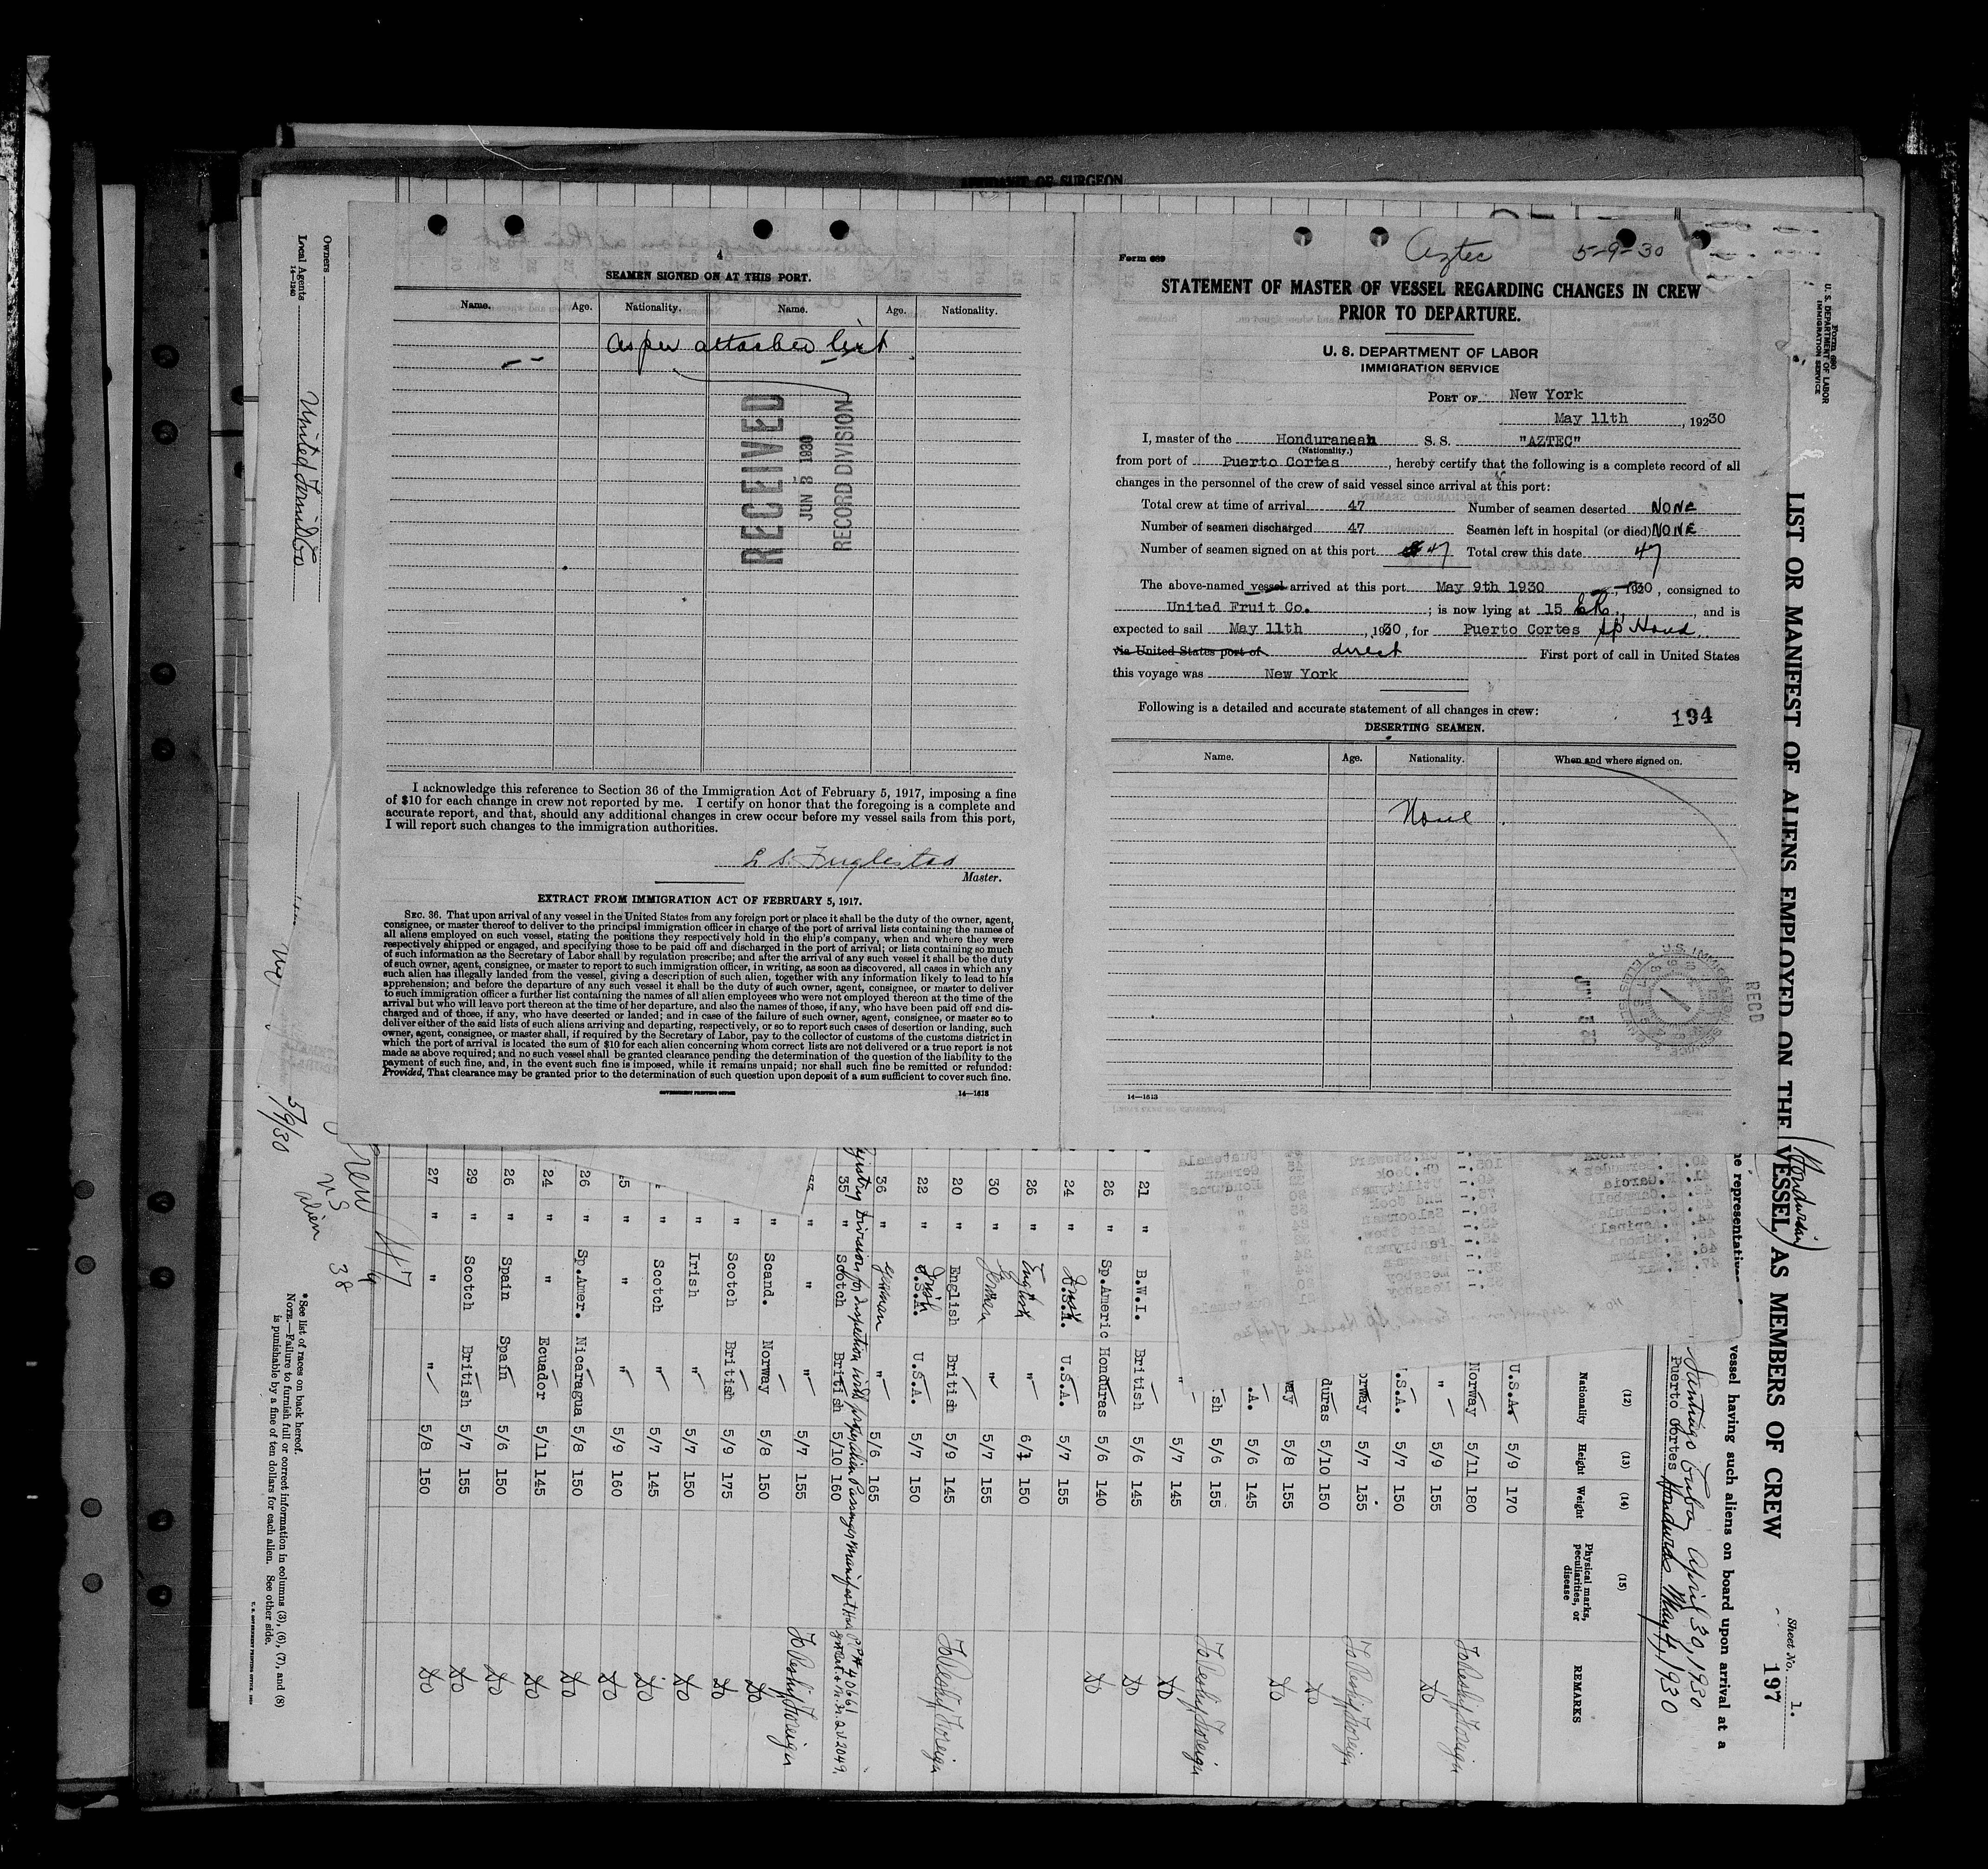 AFFIDAVIT OF SURGEON
4
SEAMEN SIGNED ON AT THIS PORT.
Name. Age. Nationality. Name. Age. Nationality.
as per attached list
RECEIVED
JUN 8 1930
RECORD DIVISION
I acknowledge this reference to Section 36 of the Immigration Act of February 5, 1917, imposing a fine
of $10 for each change in crew not reported by me. I certify on honor that the foregoing is a complete and
accurate report, and that, should any additional changes in crew occur before my vessel sails from this port,
I will report such changes to the immigration authorities.
Master.
EXTRACT FROM IMMIGRATION ACT OF FEBRUARY 5, 1917.
SEC. 36. That upon arrival of any vessel in the United States from any foreign port or place it shall be the duty of the owner, agent,
consignee, or master thereof to deliver to the principal immigration officer in charge of the port of arrival lists containing the names of
all aliens employed on such vessel, stating the positions they respectively hold in the ship's company, when and where they were
respectively shipped or engaged, and specifying those to be paid off and discharged in the port of arrival; or lists containing so much
of such information as the Secretary of Labor shall by regulation prescribe; and after the arrival of any such vessel it shall be the duty
of such owner, agent, consignee, or master to report to such immigration officer, in writing, as soon as discovered, all cases in which any
such alien has illegally landed from the vessel, giving a description of such alien, together with any information likely to lead to his
apprehension; and before the departure of any such vessel it shall be the duty of such owner, agent, consignee, or master to deliver
to such immigration officer a further list containing the names of all alien employees who were not employed thereon at the time of the
arrival but who will leave port thereon at the time of her departure, and also the names of those, if any, who have been paid off and dis-
charged and of those, if any, who have deserted or landed; and in case of the failure of such owner, agent, consignee, or master so to
deliver either of the said lists of such aliens arriving and departing, respectively, or so to report such cases of desertion or landing, such
owner, agent, consignee, or master shall, if required by the Secretary of Labor, pay to the collector of customs of the customs district in
which the port of arrival is located the sum of $10 for each alien concerning whom correct lists are not delivered or a true report is not
made as above required; and no such vessel shall be granted clearance pending the determination of the question of the liability to the
payment of such fine, and, in the event such fine is imposed, while it remains unpaid; nor shall such fine be remitted or refunded:
Provided, That clearance may be granted prior to the determination of such question upon deposit of a sum sufficient to cover such fine.
GOVERNMENT PRINTING OFFICE 14—1613
Form 689
Aztec 5-9-30
STATEMENT OF MASTER OF VESSEL REGARDING CHANGES IN CREW
PRIOR TO DEPARTURE.
U. S. DEPARTMENT OF LABOR
IMMIGRATION SERVICE
PORT OF New York
May 11th, 19230
I, master of the Honduranean S. S. "AZTEC"
(Nationality.)
from port of Puerto Cortes, hereby certify that the following is a complete record of all
changes in the personnel of the crew of said vessel since arrival at this port:
Total crew at time of arrival 47 Number of seamen deserted NONE
Number of seamen discharged 47 Seamen left in hospital (or died) NONE
Number of seamen signed on at this port 47 Total crew this date 47
The above-named vessel arrived at this port May 9th 1930, 1930, consigned to
United Fruit Co.; is now lying at 15 ER., and is
expected to sail May 11th, 1930, for Puerto Cortes Sp Hond.
via United States port of direct First port of call in United States
this voyage was New York
Following is a detailed and accurate statement of all changes in crew:
194
DESERTING SEAMEN.
Name. Age. Nationality. When and where signed on.
None
14—1613
RECD
Form 680
U. S. DEPARTMENT OF LABOR
IMMIGRATION SERVICE
LIST OR MANIFEST OF ALIENS EMPLOYED ON THE VESSEL AS MEMBERS OF CREW
Sheet No. 1.
197
vessel having such aliens on board upon arrival at a
representative
Santiago Cuba April 30, 1930
Puerto Cortes Honduras May 4, 1930
(12) (13) (14) (15)
Nationality Height Weight Physical marks, peculiarities, or disease REMARKS
U.S.A. 5/9 170
Norway 5/11 180 To Reship Foreign
" 5/9 155 Do
U.S.A. 5/7 150
Norway 5/7 155 To Reship Foreign
duras 5/10 150 Do
way 5/8 155 Do
.A. 5/6 145
sh 5/6 155 To Reship Foreign
" 5/7 145 Do
21 " B.W.I. British 5/6 145 Do
26 " Sp.Americ Honduras 5/6 140 Do
24 " Irish U.S.A. U.S.A. 5/7 155
26 " English " 6/1 150
30 " German " 5/7 155
20 " English British 5/9 145 To Reship Foreign
22 " Irish U.S.A. U.S.A. 5/7 150
36 " German " 5/6 165
35 " Scotch British 5/10 160
" " " 5/7 155 To Reship Foreign
" Scand. Norway 5/8 150 Do
" Scotch British 5/9 175 Do
" Irish " 5/7 150 Do
" Scotch " 5/7 145 Do
" " " 5/9 160 Do
26 " Sp.Amer. Nicaragua 5/8 150 Do
24 " " Ecuador 5/11 145 Do
26 " Spain Spain 5/6 150 Do
29 " Scotch British 5/7 155 Do
27 " " " 5/8 150 Do
Owners
Local Agents United Fruit Co
14—1240
5/9/30
Crew 47
U S 9
alien 38
*See list of races on back hereof.
NOTE.—Failure to furnish full or correct information in columns (3), (6), (7), and (8)
is punishable by a fine of ten dollars for each alien. See other side.